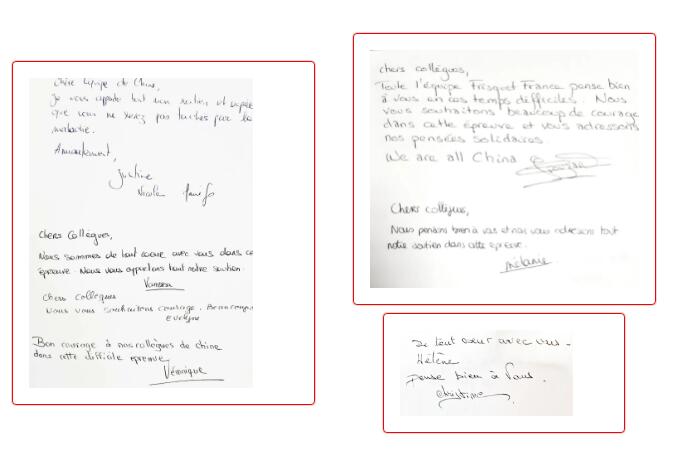 Chère équipe de Chine,
Je vous apporte tout mon soutien et espère
que vous ne serez pas touchés par la
maladie.
Amicalement,
Justine
Nicole
Chers Collègues,
Nous sommes de tout coeur avec vous dans ce
épreuve. Nous vous apportons tout notre soutien.
Vanessa
Chers collègues
Nous vous souhaitons courage. Beaucoup
Evelyne
Bon courage à nos collègues de chine
dans cette difficile épreuve
Véronique
chers collègues,
Toute l'équipe Fresquet France pense bien
à vous en ces temps difficiles. Nous
vous souhaitons beaucoup de courage
dans cette épreuve et vous adressons
nos pensées solidaires
We are all China
Chers collègues,
Nous pensons bien à vous et nous vous adressons tout
notre soutien dans cette épreuve.
Mélanie
De tout coeur avec vous.
Hélène
pense bien à Vous.
Christine